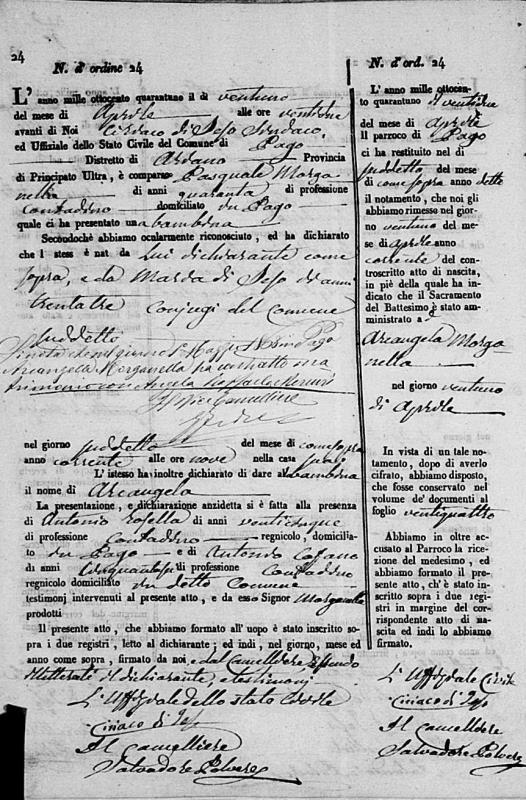 24
N. d'ordine 24
L'anno mille ottocento quarantuno il dì ventuno
del mese di Aprile alle ore ventidue
avanti di Noi Ciriaco di Peso Sindaco,
ed Uffiziale dello Stato Civile del Comune di Pago
Distretto di Ariano Provincia
di Principato Ultra, è comparso Pasquale Morga
nella di anni quaranta di professione
contadino domiciliato in Pago
quale ci ha presentato una bambina
Secondochè abbiamo ocularmente riconosciuto, ed ha dichiarato
che l stess è nat da lui dichiarante come
sopra, e da Maria di Peso di anni
trentatre conjugi del Comune
suddetto
Arcangella Morganella ha contratto ma
trimonio con Angelo
Il Vice Cancelliere
nel giorno suddetto del mese di come sopra
anno corrente alle ore nove nella casa
L'istesso ha inoltre dichiarato di dare al bambina
il nome di Arcangela
La presentazione, e dichiarazione anzidetta si è fatta alla presenza
di Antonio Rosella di anni venticinque
di professione contadino regnicolo, domicilia-
to in Pago e di Antonio Cofano
di anni cinquantasei di professione contadino
regnicolo domiciliato in detto Comune
testimonj intervenuti al presente atto, e da esso Signor Morganella
prodotti
Il presente atto, che abbiamo formato all'uopo è stato inscritto so-
pra i due registri, letto al dichiarante; ed indi, nel giorno, mese ed
anno come sopra, firmato da noi e dal Cancelliere essendo
illetterati il dichiarante, e testimonj
L'Uffiziale dello stato Civile
Ciriaco di Peso
Il Cancelliere
Salvadore Polvere
N. d'ord. 24
L'anno mille ottocen-
to quarantuno il ventidue
del mese di Aprile
Il parroco di Pago
ci ha restituito nel dì
suddetto del mese
di come sopra anno detto
il notamento, che noi gli
abbiamo rimesso nel gior-
no ventuno del me-
se di Aprile anno
corrente del con-
troscritto atto di nascita,
in piè della quale ha in-
dicato che il Sacramento
del Battesimo è stato
amministrato a
Arcangela Morga
nella
nel giorno ventuno
di Aprile
In vista di un tale no-
tamento, dopo di averlo
cifrato, abbiamo disposto,
che fosse conservato nel
volume de' documenti al
foglio ventiquattro
Abbiamo in oltre
accusato al Parroco la rice-
zione del medesimo, ed
abbiamo formato il pre-
sente atto, ch'è stato in-
scritto sopra i due regi-
stri in margine del cor-
rispondente atto di na-
scita ed indi lo abbiamo
firmato.
L'Uffiziale Civile
Ciriaco di Peso
Il Cancelliere
Salvadore Polvere